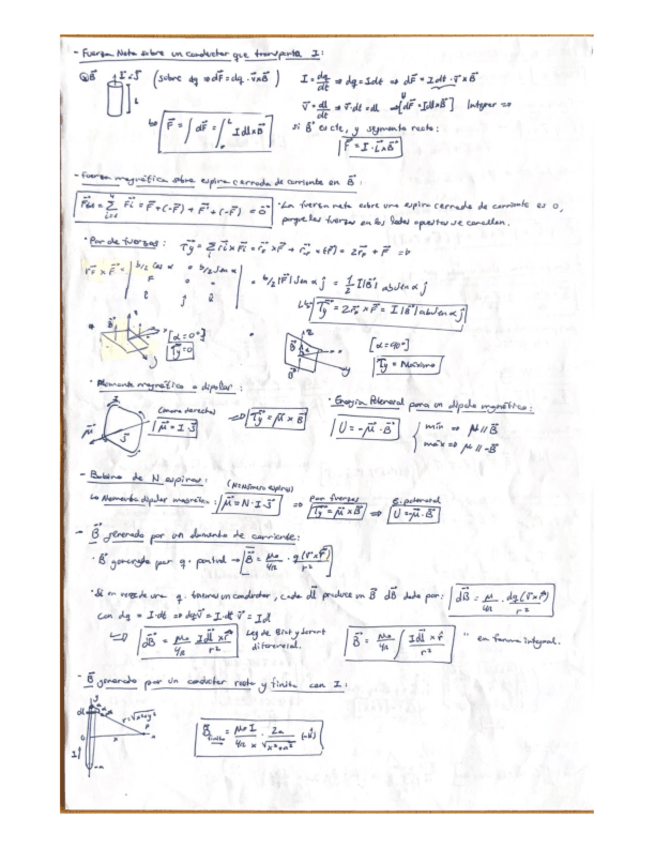 - Fuerza Neta sobre un conductor que transporta I:
(sobre dq ⇒ dF⃗ = dq · v⃗ x B⃗)
I = dq/dt ⇒ dq = I dt ⇒ dF⃗ = I dt · v⃗ x B⃗
v⃗ = dl⃗/dt ⇒ v⃗ · dt = dl⃗ ⇒ [dF⃗ = I dl⃗ x B⃗] Integrar ⇒
F⃗ = ∫ dF⃗ = ∫₀ᴸ I dl⃗ x B⃗
si B⃗ es cte, y segmento recto:
F⃗ = I · L⃗ x B⃗
- Fuerza magnética sobre espira cerrada de corriente en B⃗:
= Σ F⃗i = F⃗ + (-F⃗) + F⃗' + (-F⃗') = 0⃗
· La fuerza neta sobre una espira cerrada de corriente es 0,
porque las fuerzas en los lados opuestos se cancelan.
· Par de fuerzas:
= 2 r⃗ x F⃗
= b/2 |F⃗| sen α j = 1/2 I |B⃗| ab sen α j
τ⃗y = 2 r⃗ x F⃗ = I |B⃗| ab sen α j
[α = 0°]
τ⃗y = 0
[α = 90°]
τy = Máximo
· Momento magnético o dipolar:
(mano derecha)
μ⃗ = I · S⃗
⇒ τ⃗y = μ⃗ x B⃗
· Energía Potencial para un dipolo magnético:
U = -μ⃗ · B⃗
mín ⇒ μ // B⃗
máx ⇒ μ // -B⃗
- Bobina de N espiras:
(N = Número espiras)
↳ Momento dipolar magnético: μ⃗ = N · I · S⃗
⇒ Par fuerzas τ⃗y = μ⃗ x B⃗ ⇒ E. potencial U = -μ⃗ · B⃗
- B⃗ generado por un elemento de corriente:
· B⃗ generado por q. puntual → B⃗ = μ₀/4π · q (v⃗ x r̂)/r²
· Si en vez de una q. tenemos un conductor, cada dl⃗ produce un dB⃗ dado por: dB⃗ = μ₀/4π · dq (v⃗ x r̂)/r²
con dq = I · dt ⇒ dq v⃗ = I · dt v⃗ = I dl
dB⃗ = μ₀/4π I dl⃗ x r̂/r² Ley de Biot y Savart diferencial.
B⃗ = μ₀/4π ∫ I dl⃗ x r̂/r² " en forma integral.
- B⃗ generado por un conductor recto y finito con I:
r = √(x²+y²)
B⃗ finito = μ₀ I/4π x · 2a/√(x²+a²) (-k⃗)